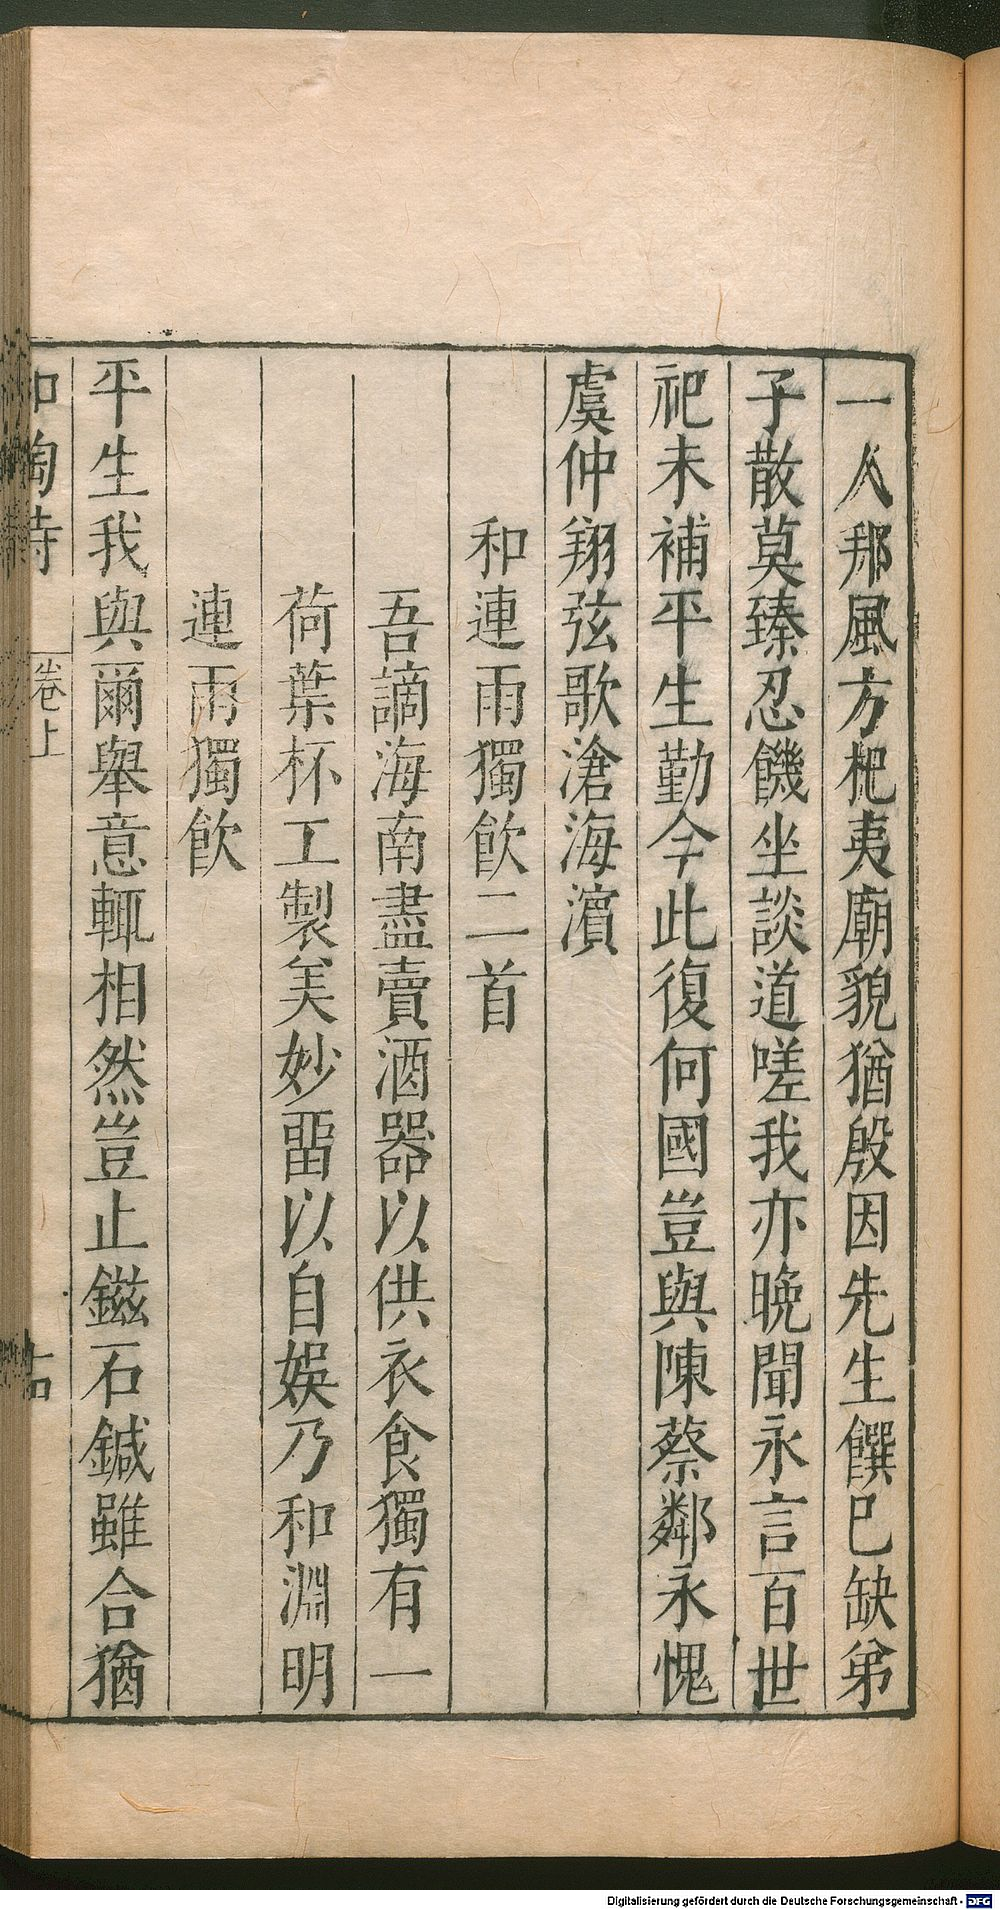 一人那風方杝夷廟貌猶殷因先生饌巳缺弟
子散莫臻忍饑坐談道嗟我亦晚聞永言百世
祀未補平生勤今此復何國豈與陳蔡鄰永愧
虞仲翔弦歌滄海濱
和連雨獨飲二首
吾謫海南盡賣酒器以供衣食獨有一
荷葉杯工製美妙畱以自娛乃和淵明
連雨獨飲
平生我與爾舉意輒相然豈止鎡石鍼雖合猶
和陶詩 卷上
Digitalisierung gefördert durch die Deutsche Forschungsgemeinschaft - DFG